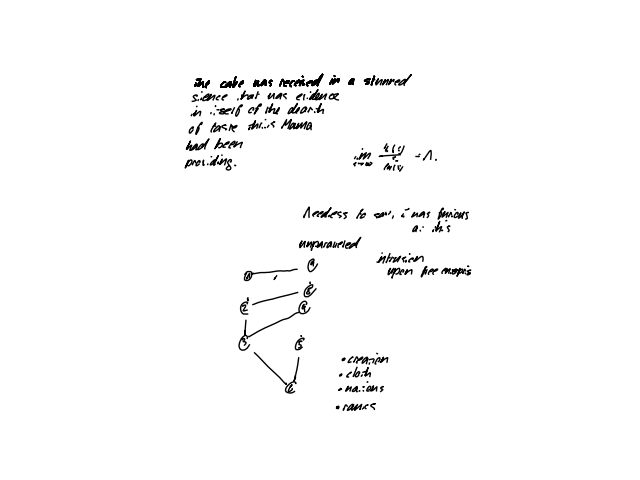 The cake was received in a stunned
silence that was evidence
in itself of the dearth
of taste this Mama
had been
providing.
lim = Λ.
Needless to say, i was furious
at this
unparalleled
intrusion
upon free
2
3
5
6
• creation
• cloth
• nations
• ranks